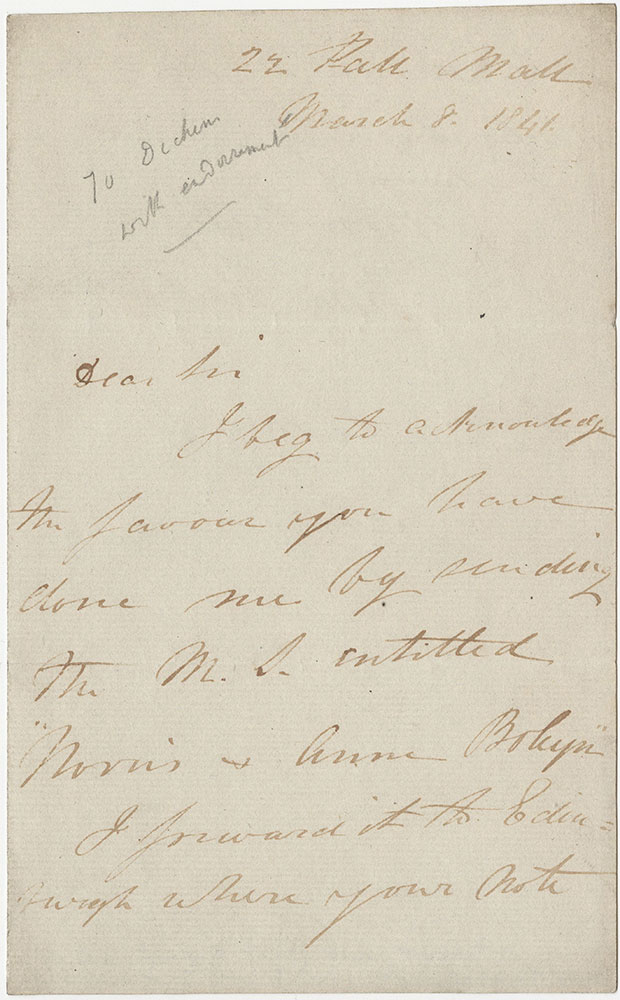 22 Pall Mall
March 8. 1841.
To Dickens
with endorsement
Dear Sir
I beg to acknowledge
the favour you have
done me by sending
the M. S. intitled
"Norris & Anne Boleyn"
I forward it to Edin=
burgh where your note